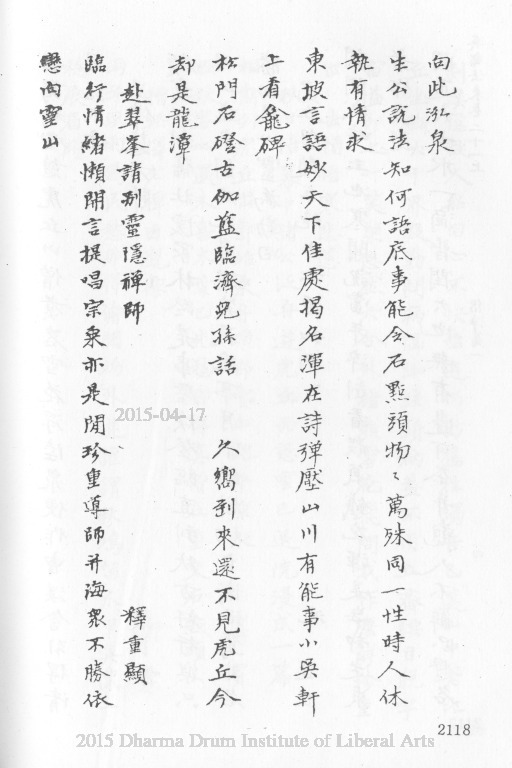 向此泓泉
生公說法知何語底事能令石點頭物〻萬殊同一性時人休
執有情求
東坡言語妙天下佳處揭名渾在詩彈壓山川有能事小吳軒
上看龕碑
松門石磴古伽藍臨濟兒孫話　　久嚮到來還不見虎丘今
却是龍潭
赴翠峯請別靈隱禪師　　釋重顯
臨行情緒懶開言提唱宗乘亦是閒珍重導師并海衆不勝依
戀向靈山
2015-04-17
2118
2015 Dharma Drum Institute of Liberal Arts